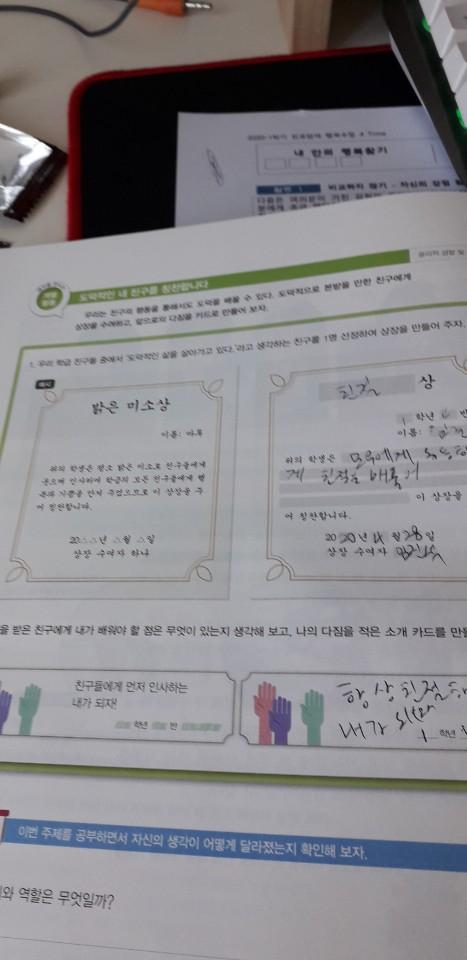 2020-1학기 진로탐색 행복수업 # Time
내 안의 행복찾기
비교하지 않기 - 자신의 강점
윤리적 성찰 및
도덕적인 내 친구를 칭찬합니다
우리는 친구의 행동을 통해서도 도덕을 배울 수 있다. 도덕적으로 본받을 만한 친구에게
상장을 수여하고, 앞으로의 다짐을 카드로 만들어 보자.
1. 우리 학급 친구들 중에서 '도덕적인 삶을 살아가고 있다.'라고 생각하는 친구를 1명 선정하여 상장을 만들어 주자.
예시
밝은 미소상
이름: 하루
위의 학생은 평소 밝은 미소로 친구들에게
웃으며 인사하여 학급의 모든 친구들에게 행
복과 기쁨을 안겨 주었으므로 이 상장을 주
어 칭찬합니다.
20△△년 △월 △일
상장 수여자 하나
친절 상
1 학년 반
이름:
위의 학생은 모두에게,
게 친절을 베풀어
이 상장을
여 칭찬합니다.
2020년 4월 28일
상장 수여자
을 받은 친구에게 내가 배워야 할 점은 무엇이 있는지 생각해 보고, 나의 다짐을 적은 소개 카드를 만들
친구들에게 먼저 인사하는
내가 되자!
학년 반
항상 친절
내가 되자
1 학년
이번 주제를 공부하면서 자신의 생각이 어떻게 달라졌는지 확인해 보자.
와 역할은 무엇일까?